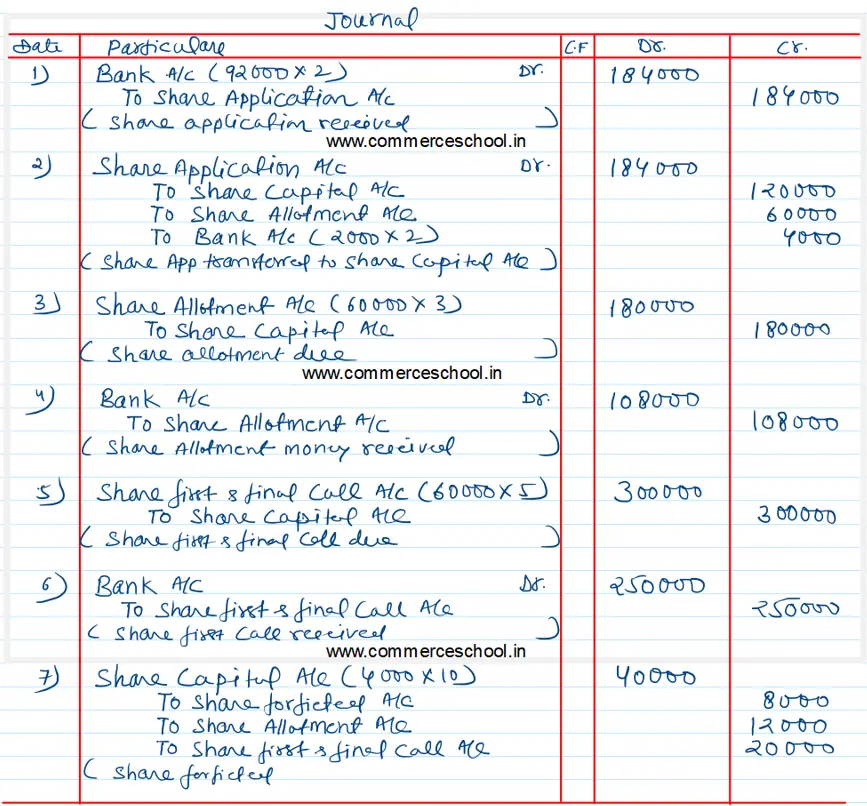 Journal
Date Particulare C.F Dr. Cr.
1) Bank A/c (92000 x 2) Dr. 184000
To Share Application A/c 184000
( Share application received )
www.commerceschool.in
2) Share Application A/c Dr. 184000
To Share Capital A/c 120000
To Share Allotment A/c 60000
To Bank A/c (2000 x 2) 4000
( Share App transferred to Share Capital A/c )
3) Share Allotment A/c (60000 x 3) 180000
To Share Capital A/c 180000
( Share allotment due )
www.commerceschool.in
4) Bank A/c Dr. 108000
To Share Allotment A/c 108000
( Share Allotment money received )
5) Share first & final Call A/c (60000 x 5) 300000
To Share Capital A/c 300000
( Share first & final Call due )
6) Bank A/c Dr. 250000
To Share first & final Call A/c 250000
( Share first Call received )
www.commerceschool.in
7) Share Capital A/c (4000 x 10) 40000
To Share forficted A/c 8000
To Share Allotment A/c 12000
To Share first & final Call A/c 20000
( Share forficted